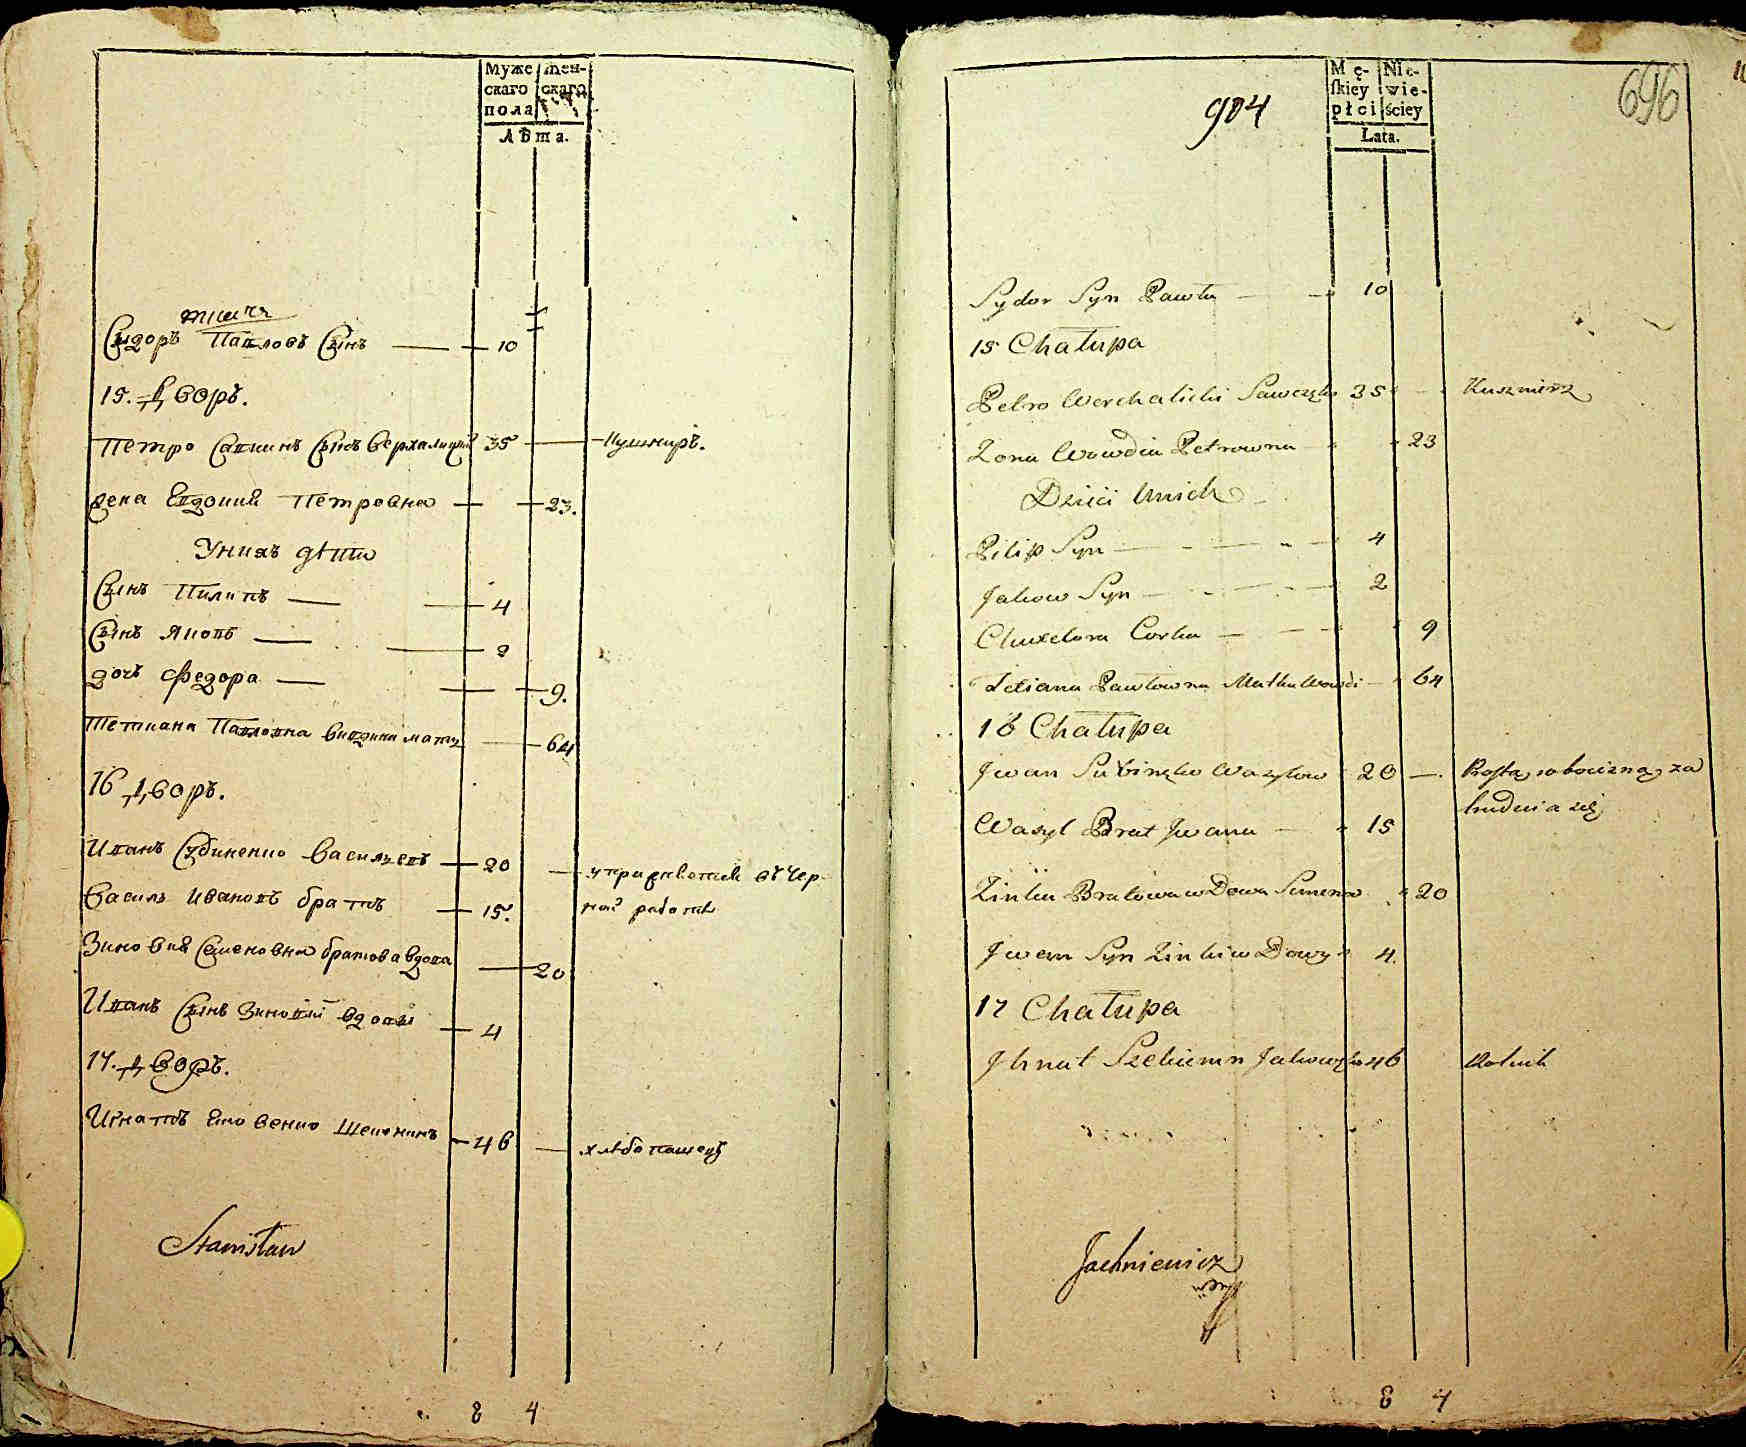 Муже женскаго
скаго
пола
Лѣта.
Сидоръ Павловъ Сынъ 10
15. Дворъ.
Петро Савчинъ Сынъ Верхалицкий 35 Кушниръ.
жена Евдокия Петровна 23.
Униxъ дѣти
Сынъ Пилипъ 4
Сынъ Яковъ 2
дочь Федора 9.
Тетиана Павловна Вивдини мать 64
16 Дворъ.
Иванъ Субиненко Васильевъ 20 упражняется въ чер
Василь Ивановъ братъ 15. ной работѣ
Зиновия Семеновна братова вдова 20
Иванъ Сынъ Зиновии вдовы 4
17. Дворъ.
Игнатъ Яковенко Щекининъ 46 хлѣбопашецъ
Stanisław
8 4
904
696
Mę- Nie-
skiey wie-
płci ściey
Lata.
Sydor Syn Pawła 10
15 Chałupa
Petro Werchalicki Sawczyn 35 Kusznierz
Zona Wowdia Petrowna 23
Dzieci Unich
Pilip Syn 4
Jakow Syn 2
Chwedora Corka 9
Tetiana Pawłowna Matka Wowdi 64
16 Chałupa
Jwan Subinzko Wasylow 20 Prostą robocizną za
Wasyl Brat Jwana 15 trudnia się
Zinka Bratowa wDowa Simena 20
Jwan Syn Zinki wDowy 4.
17 Chałupa
Jhnat Szekienin Jakowzko 46 Rolnik
Jachniewicz
8 4